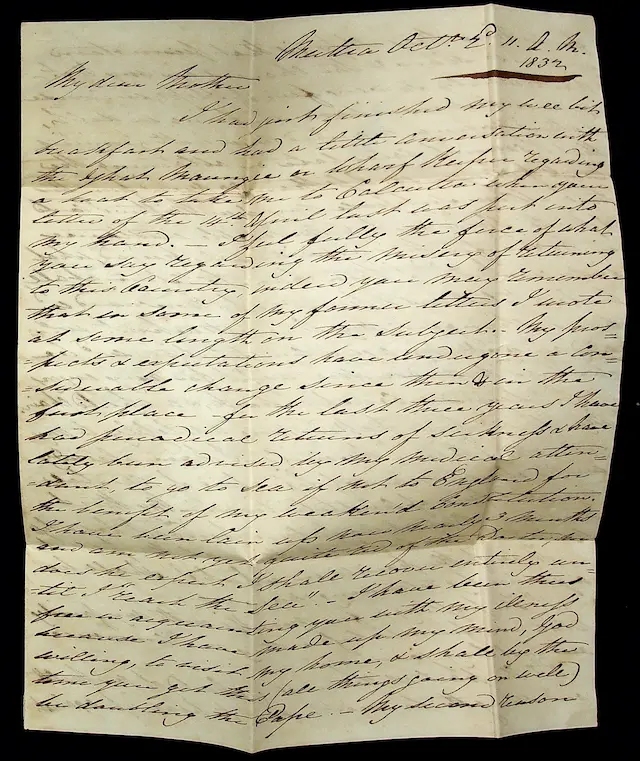 Muttra Octr 2d 11 A. M.
1832
My dear Brother
I had just finished my wee bit
breakfast and had a little conversation with
the Ghat or Wharf Keeper regarding
a boat to take me to Calcutta when your
letter of the 14th April last was put into
my hand. — I feel fully the force of what
you say regarding the misery of returning
to this Country indeed you may remember
that in some of my former letters I wrote
at some length on the subject. My pros=
pects & expectations have undergone a con=
=siderable change since then & in the
first place — for the last three years I have
had periodical returns of sickness & have
lately been advised by my medical atten=
dant to go to Sea if not to England for
the benefit of my weakend Constitution.
I have been laid up now nearly 3 months
and am not yet quite rid of the nor
does he expect I shall recover entirely un=
til I "reach the Sea". — I have been thus
free in acquainting you with my illness
because I have made up my mind, God
willing, to visit my home, & shall by the
time you get this (all things going on well)
be doubling the Cape. — My second reason